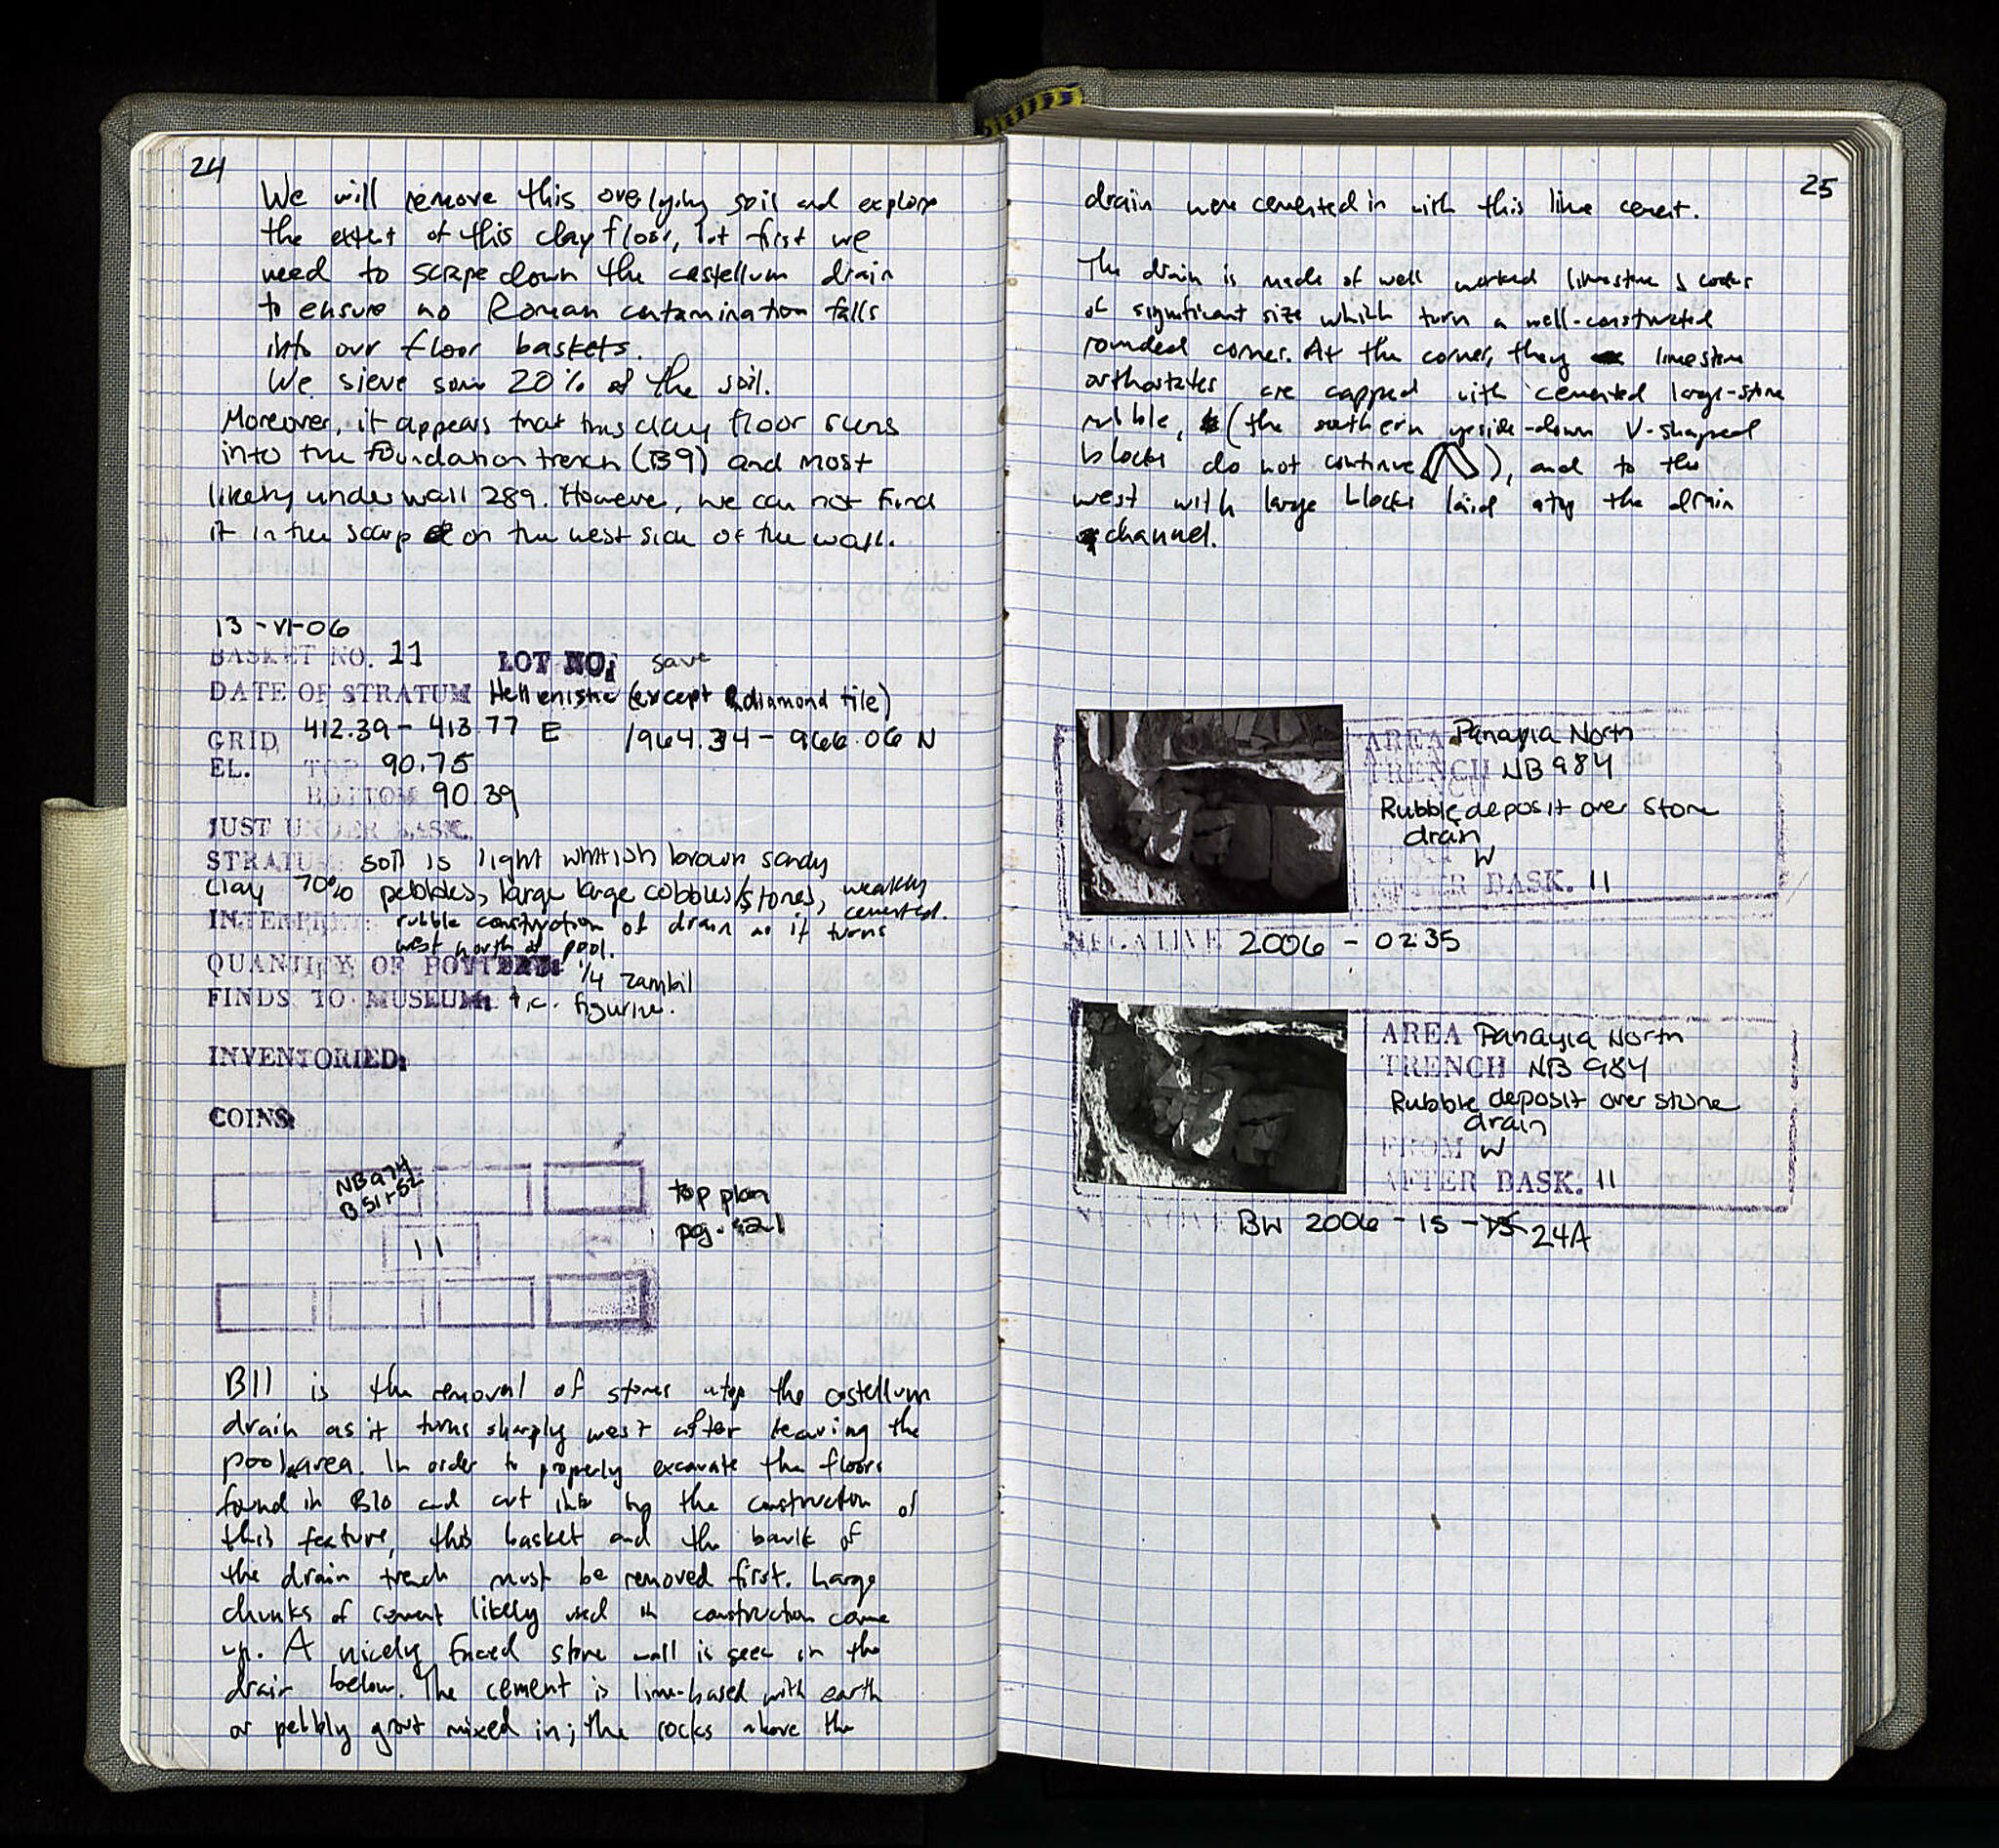 24
We will remove this overlying soil and explore
the extent of this clay floor, but first we
need to scrape down the castellum drain
to ensure no Roman contamination falls
into our floor baskets.
We sieve some 20% of the soil.
Moreover, it appears that this clay floor runs
into the foundation trench (B9) and most
likely under wall 289. However, we can not find
it in the scarp on the west side of the wall.
13-VI-06
BASKET NO. 11 LOT NO: save
DATE OF STRATUM Hellenistic (except diamond tile)
GRID 412.39 - 413.77 E 1964.34 - 966.06 N
EL. TOP 90.75
BOTTOM 90.39
JUST UNDER BASK.
STRATUM: soil is light whitish brown sandy
clay 70% pebbles, large large cobbles/stones, weakly cemented.
INTERPRET: rubble construction of drain as it turns
west north of pool.
QUANTITY OF POTTERY: 1/4 zambil
FINDS TO MUSEUM: t.c. figurine.
INVENTORIED:
COINS:
NB974
B 51+52
11
top plan
pg. 21
B11 is the removal of stones atop the castellum
drain as it turns sharply west after leaving the
pool area. In order to properly excavate the floors
found in B10 and cut into by the construction of
this feature, this basket and the baulk of
the drain trench must be removed first. Large
chunks of cement likely used in construction came
up. A nicely faced stone wall is seen in the
drain below. The cement is lime-based with earth
or pebbly grout mixed in; the rocks above the
25
drain were cemented in with this lime cement.
The drain is made of well worked limestone blocks
of significant size which turn a well-constructed
rounded corner. At the corner, they limestone
orthostates are capped with cemented large-stone
rubble, (the southern upside-down V-shaped
blocks do not continue), and to the
west with large blocks laid atop the drain
channel.
AREA Panayia North
TRENCH NB984
Rubble deposit over stone
drain
W
AFTER BASK. 11
NEGATIVE 2006 - 0235
AREA Panayia North
TRENCH NB 984
Rubble deposit over stone
drain
FROM W
AFTER BASK. 11
BW 2006 - 15 - 24A